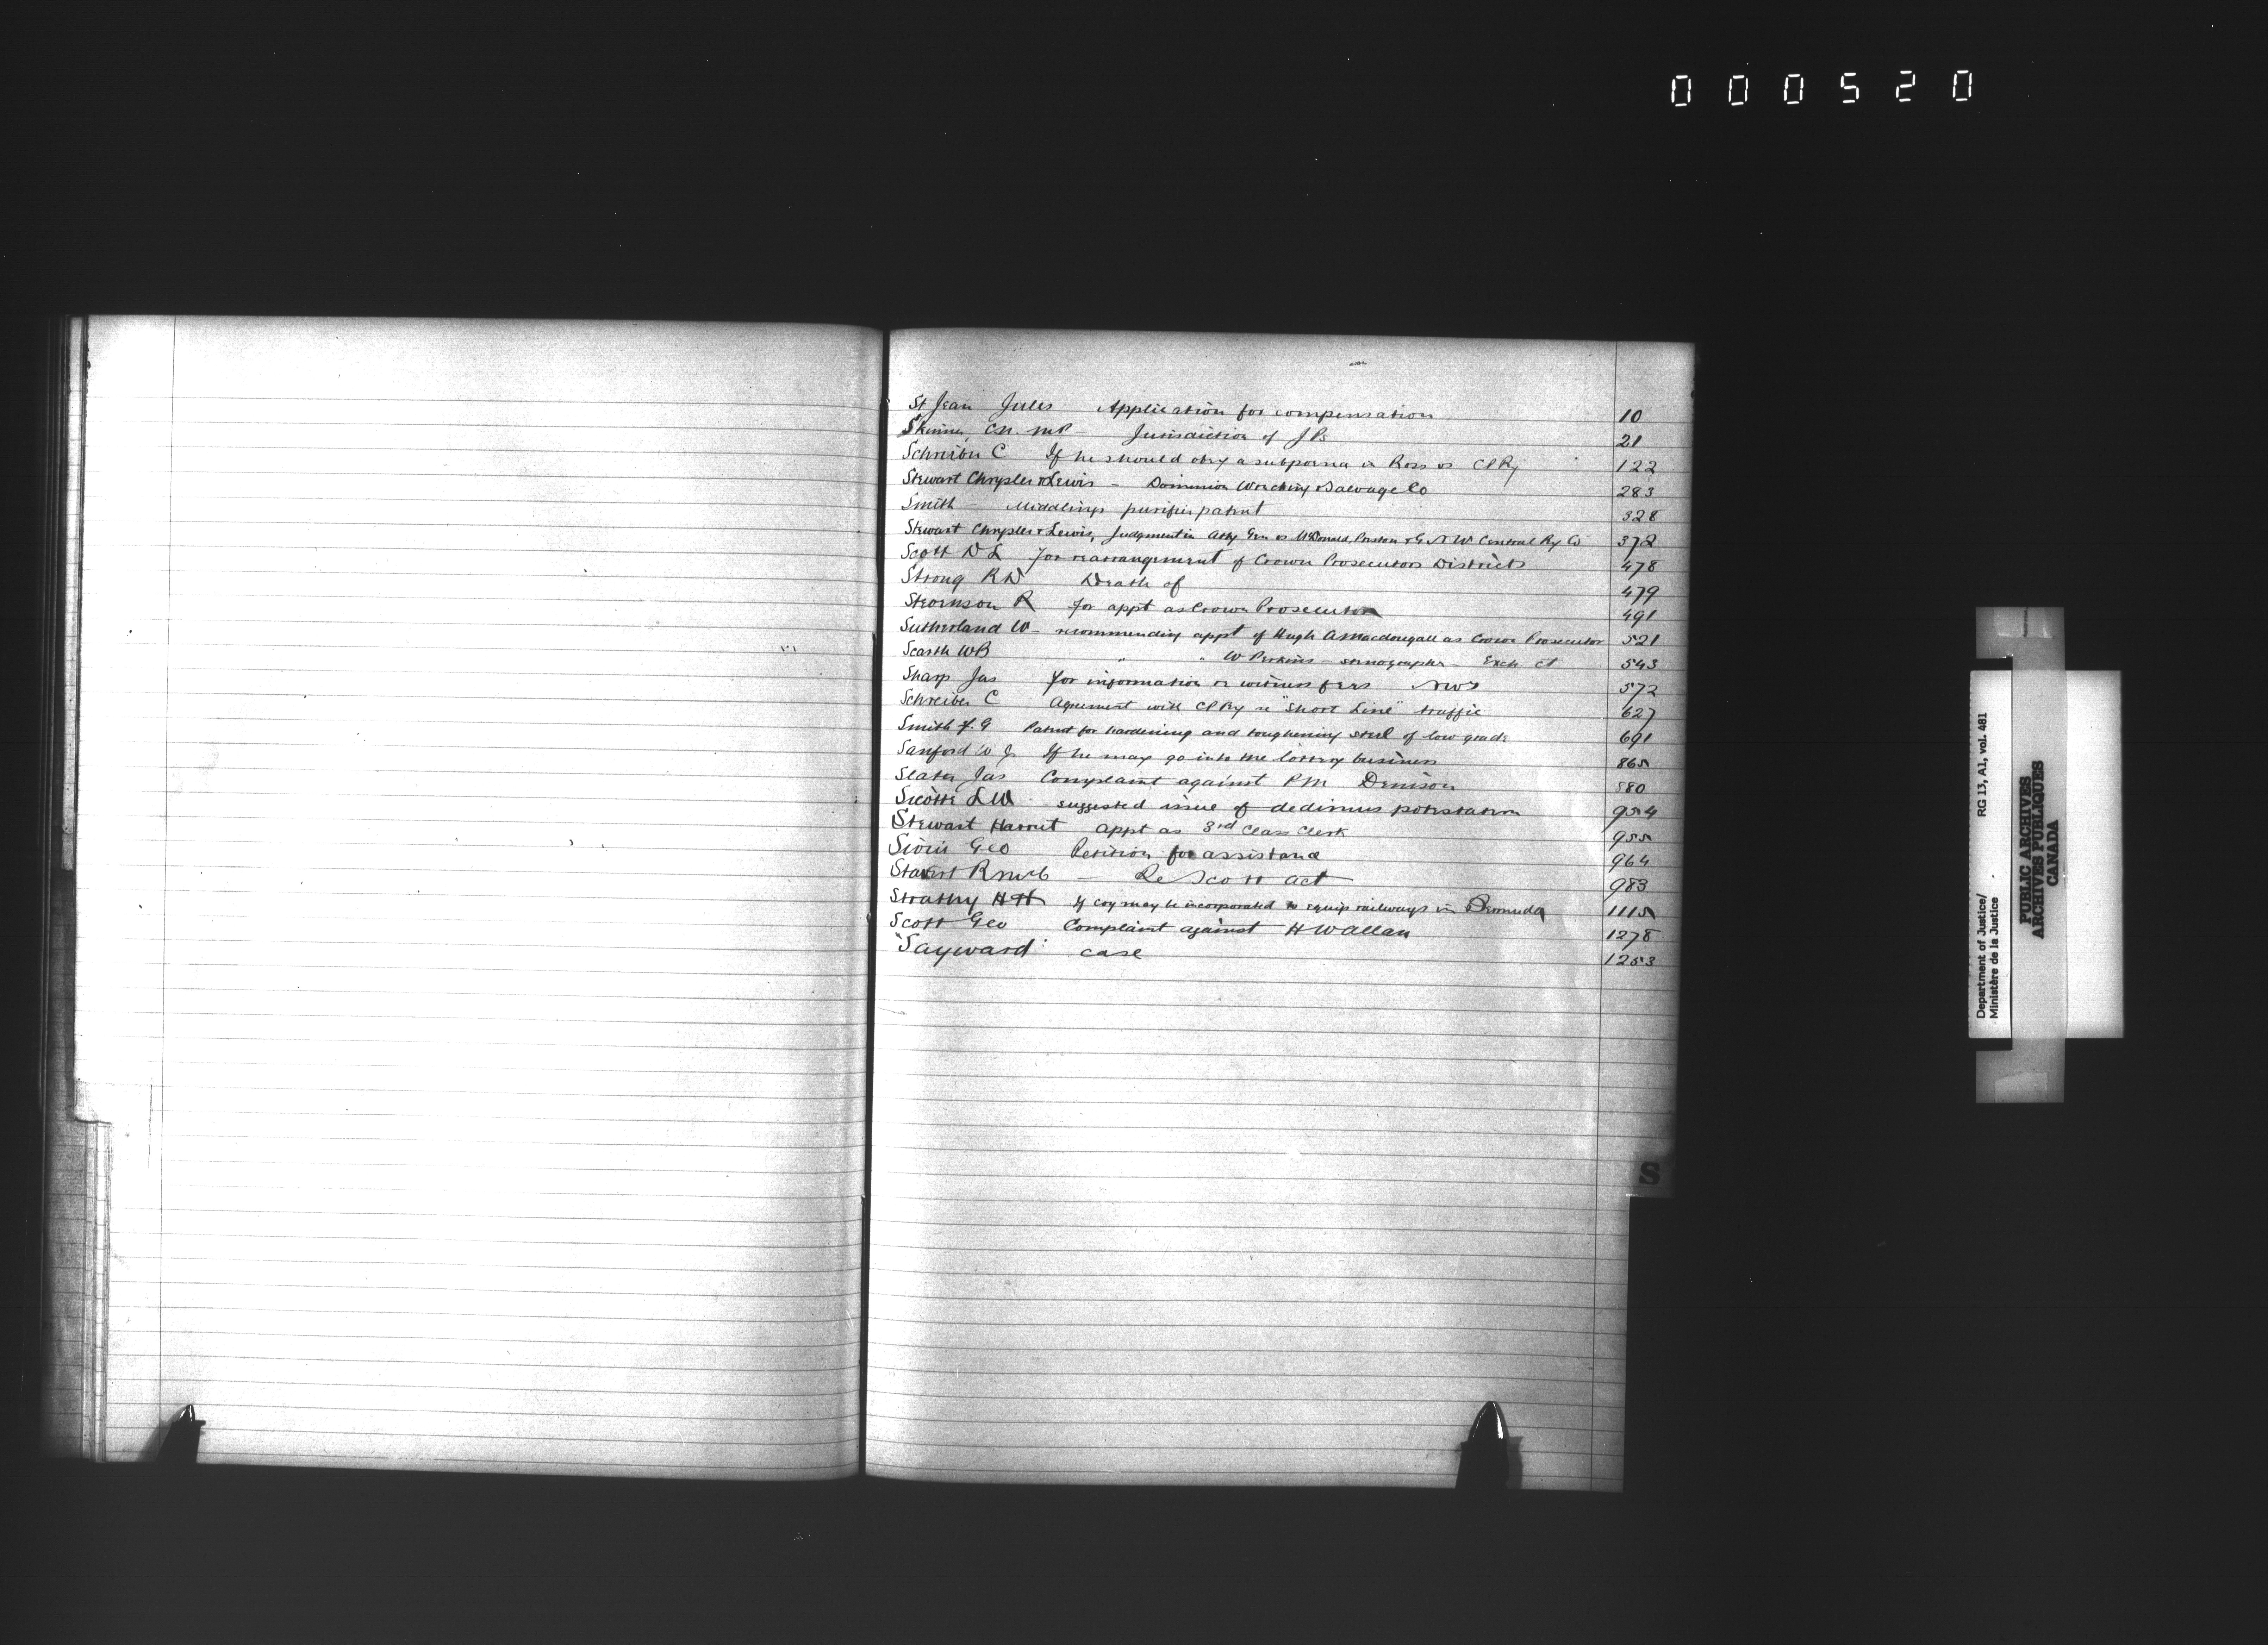 000520
St Jean Jules Application for compensation 10
Skinner C.N. MP - Jurisdiction of JPs 21
Schreiber C If he should obey a subpoena in Ross vs CPRy 122
Stewart Chrysler & Lewis - Dominion Wrecking & Salvage Co 283
Smith - Middlings purifier patent 328
Stewart Chrysler & Lewis, Judgment in Atty Gen vs McDonald, Preston & G.N.W Central Ry Co 372
Scott D L for rearrangement of Crown Prosecutors Districts 478
Strong R D Death of 479
Stevenson R for appt as Crown Prosecutor 491
Sutherland W - recommending appt of Hugh A Macdougall as Crown Prosecutor 521
Scarth WB " " W Perkins - stenographer - Exch Ct 543
Sharp Jas for information re witness fees NWT 572
Schreiber C Agreement with CPRy re "Short Line" traffic 627
Smith F. G Patent for hardening and toughening steel of low grade 691
Sanford W J If he may go into the lottery business 865
Slater Jas Complaint against P.M. Denison 880
Sicotte L W suggested issue of dedimus potestatem 954
Stewart Harriet appt as 3rd Class Clerk 955
Geo Petition for assistance 964
Stavert R McC - Re Scott Act 983
Strathy H H If coy may be incorporated to equip railways in Bermuda 1115
Scott Geo Complaint against H W Allan 1278
"Sayward" case 1253
S
Department of Justice/ RG 13, A1, vol. 481
Ministère de la Justice
PUBLIC ARCHIVES
ARCHIVES PUBLIQUES
CANADA